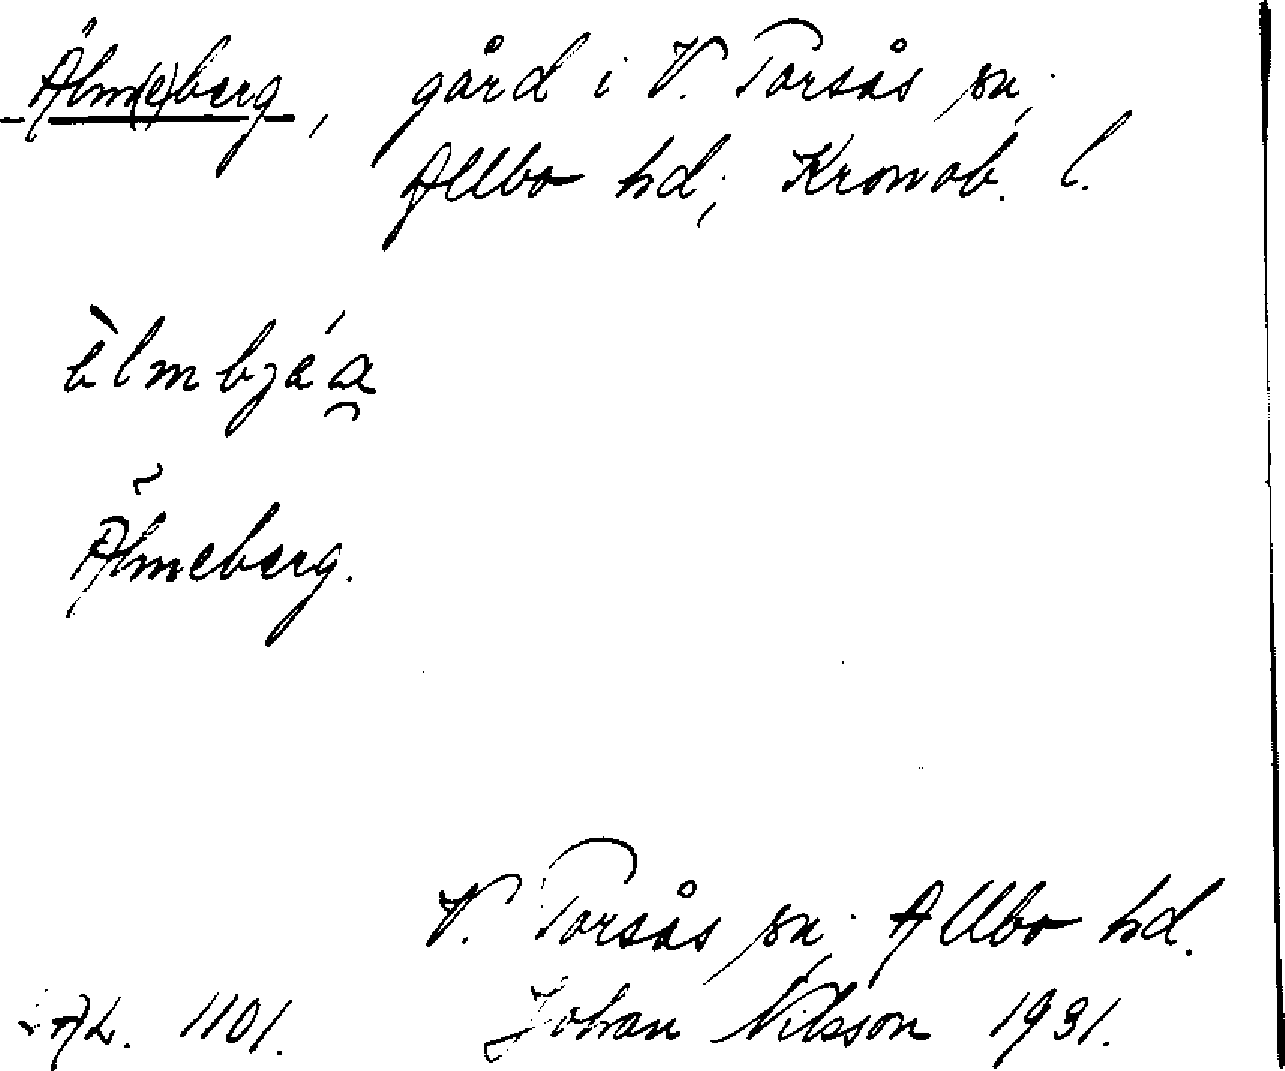 Älm(e)berg, gård i V. Torsås sn,
Allbo hd, Kronob. l.
Älmeberg.
V. Torsås sn, Allbo hd.
AL. 1101. Johan Nilsson 1931.